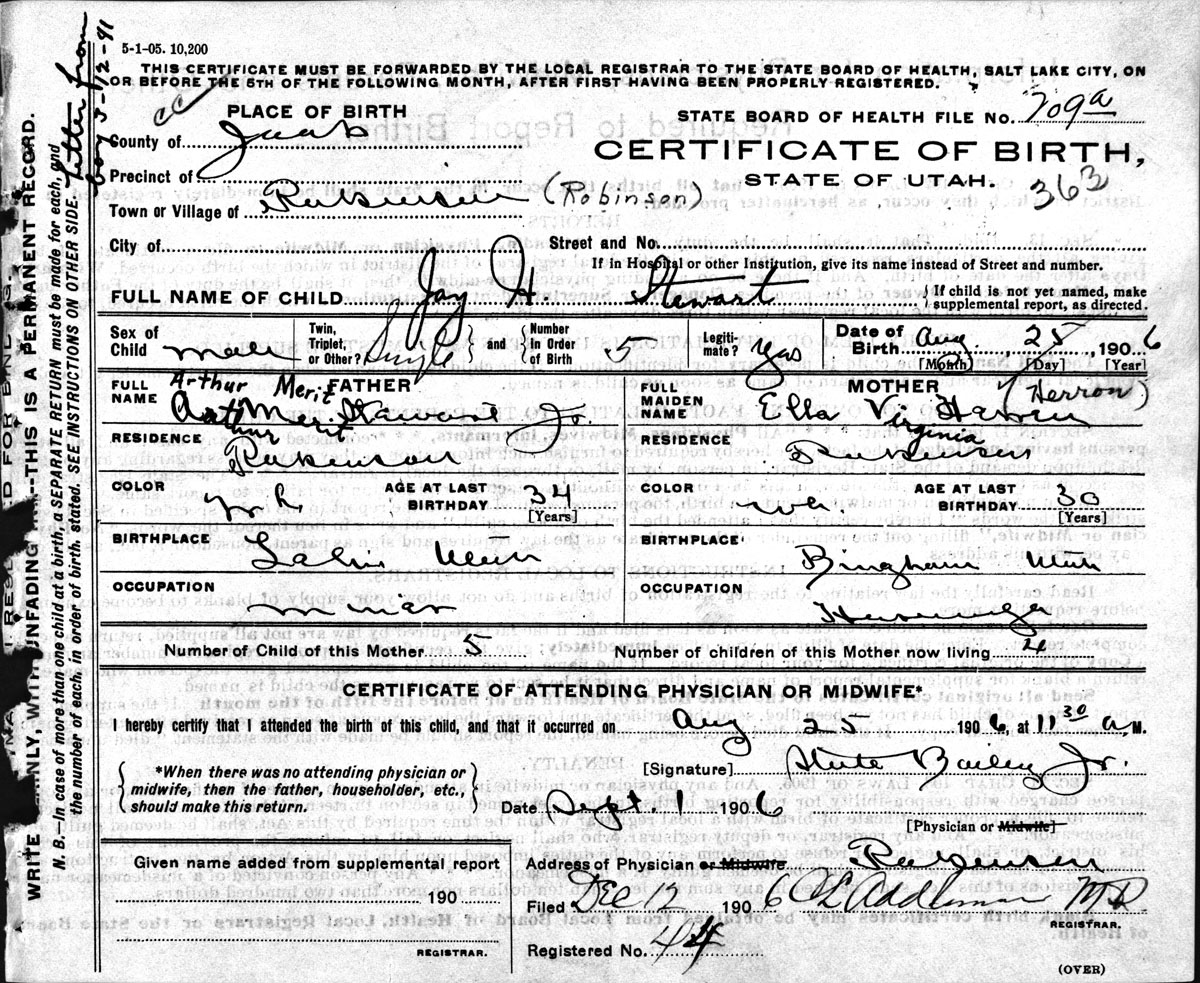 5-1-05. 10,200
THIS CERTIFICATE MUST BE FORWARDED BY THE LOCAL REGISTRAR TO THE STATE BOARD OF HEALTH, SALT LAKE CITY, ON
OR BEFORE THE 5TH OF THE FOLLOWING MONTH, AFTER FIRST HAVING BEEN PROPERLY REGISTERED.
PLACE OF BIRTH
STATE BOARD OF HEALTH FILE No. 709a
County of Juab
CERTIFICATE OF BIRTH,
Precinct of
STATE OF UTAH. 363
Town or Village of Robinson (Robinson)
City of
Street and No.
If in Hospital or other Institution, give its name instead of Street and number.
FULL NAME OF CHILD Jay H Stewart
{ If child is not yet named, make
supplemental report, as directed.
Sex of Child male
Twin, Triplet, or Other? Single } and { Number in Order of Birth 5
Legiti- mate? Yas
Date of Birth Aug 25, 1906
[Month] [Day] [Year]
FULL NAME
FATHER
Arthur Merit
Art Merit Stewart Jr.
Arthur
FULL MAIDEN NAME
MOTHER (Herron)
Ella Vir Herron
Virginia
RESIDENCE Robinson
RESIDENCE Robinson
COLOR wh
AGE AT LAST BIRTHDAY 34
[Years]
COLOR wh
AGE AT LAST BIRTHDAY 30
[Years]
BIRTHPLACE Utah
BIRTHPLACE Bingham Utah
OCCUPATION minar
OCCUPATION
Number of Child of this Mother 5
Number of children of this Mother now living 4
CERTIFICATE OF ATTENDING PHYSICIAN OR MIDWIFE*
I hereby certify that I attended the birth of this child, and that it occurred on Aug 25 1906, at 11 30 a, M.
{ *When there was no attending physician or
midwife, then the father, householder, etc.,
should make this return. }
[Signature] Steele Bailey Jr.
Date Sept. 1 1906
[Physician or Midwife]
Given name added from supplemental report
190
REGISTRAR.
Address of Physician or Midwife Robinson
Filed Dec 12 1906 MD
REGISTRAR.
Registered No. 44
(OVER)
WRITE PLAINLY, WITH UNFADING INK---THIS IS A PERMANENT RECORD.
N. B.—In case of more than one child at a birth, a SEPARATE RETURN must be made for each, and
the number of each, in order of birth, stated. SEE INSTRUCTIONS ON OTHER SIDE.
Letter from
boy 5-12-41